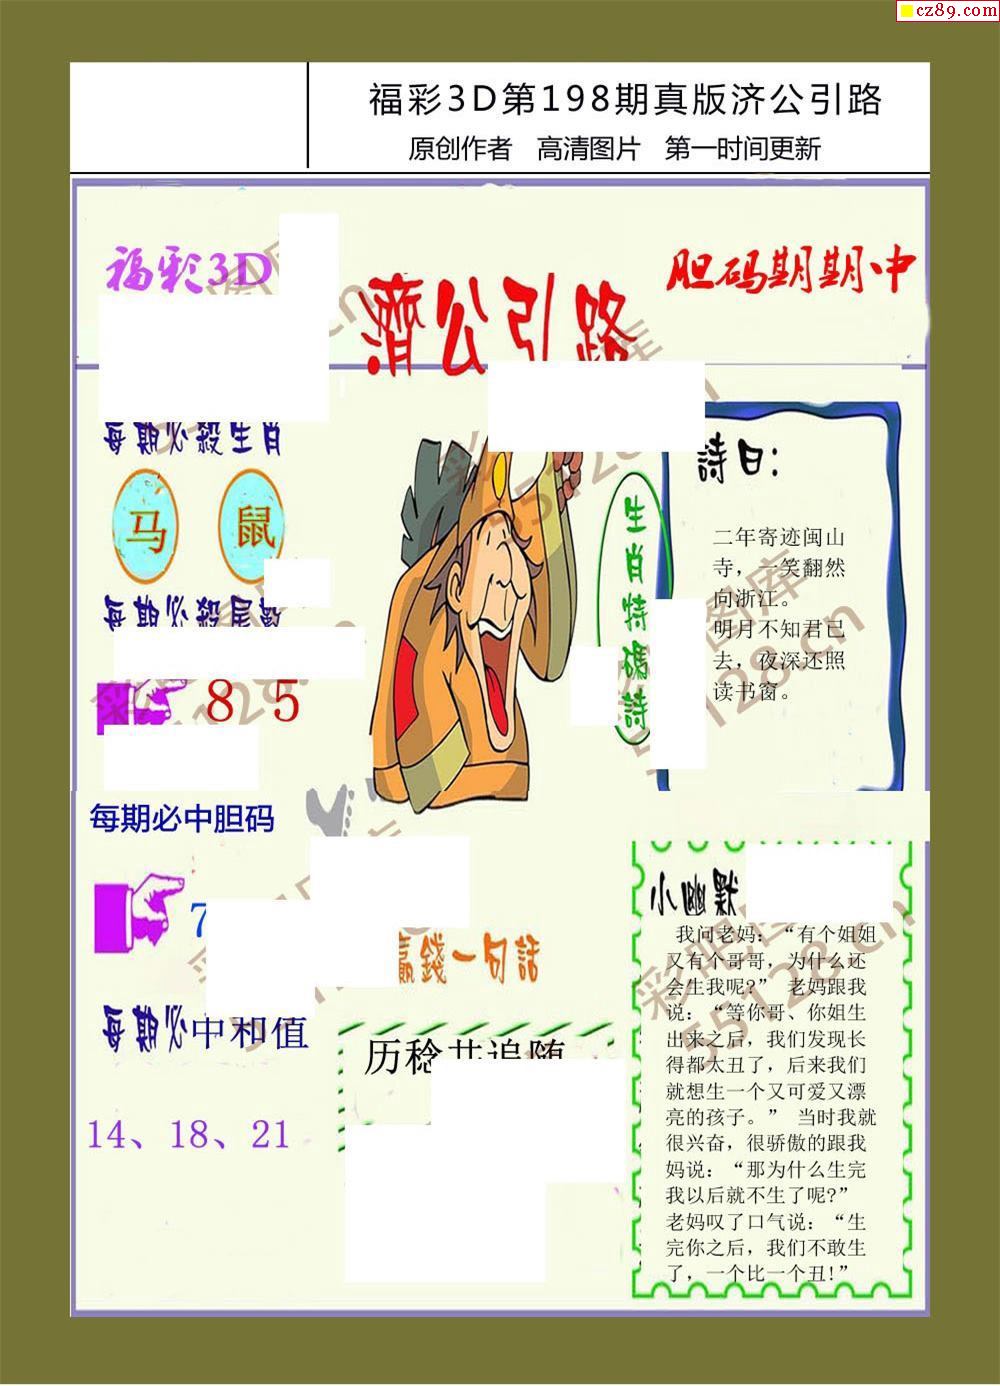 cz89.com
福彩3D第198期真版济公引路
原创作者 高清图片 第一时间更新
福彩3D
濟公引路
胆码期期中
每期必殺生肖
马 鼠
每期必殺尾數
8 5
每期必中胆码
7
每期必中和值
14、18、21
生肖特碼詩
詩曰:
二年寄迹闽山
寺，一笑翻然
向浙江。
明月不知君已
去，夜深还照
读书窗。
赢錢一句話
历稔共追随
小幽默
我问老妈：“有个姐姐
又有个哥哥，为什么还
会生我呢?” 老妈跟我
说：“等你哥、你姐生
出来之后，我们发现长
得都太丑了，后来我们
就想生一个又可爱又漂
亮的孩子。” 当时我就
很兴奋，很骄傲的跟我
妈说：“那为什么生完
我以后就不生了呢?”
老妈叹了口气说：“生
完你之后，我们不敢生
了，一个比一个丑!”
彩吧图库
55128.cn